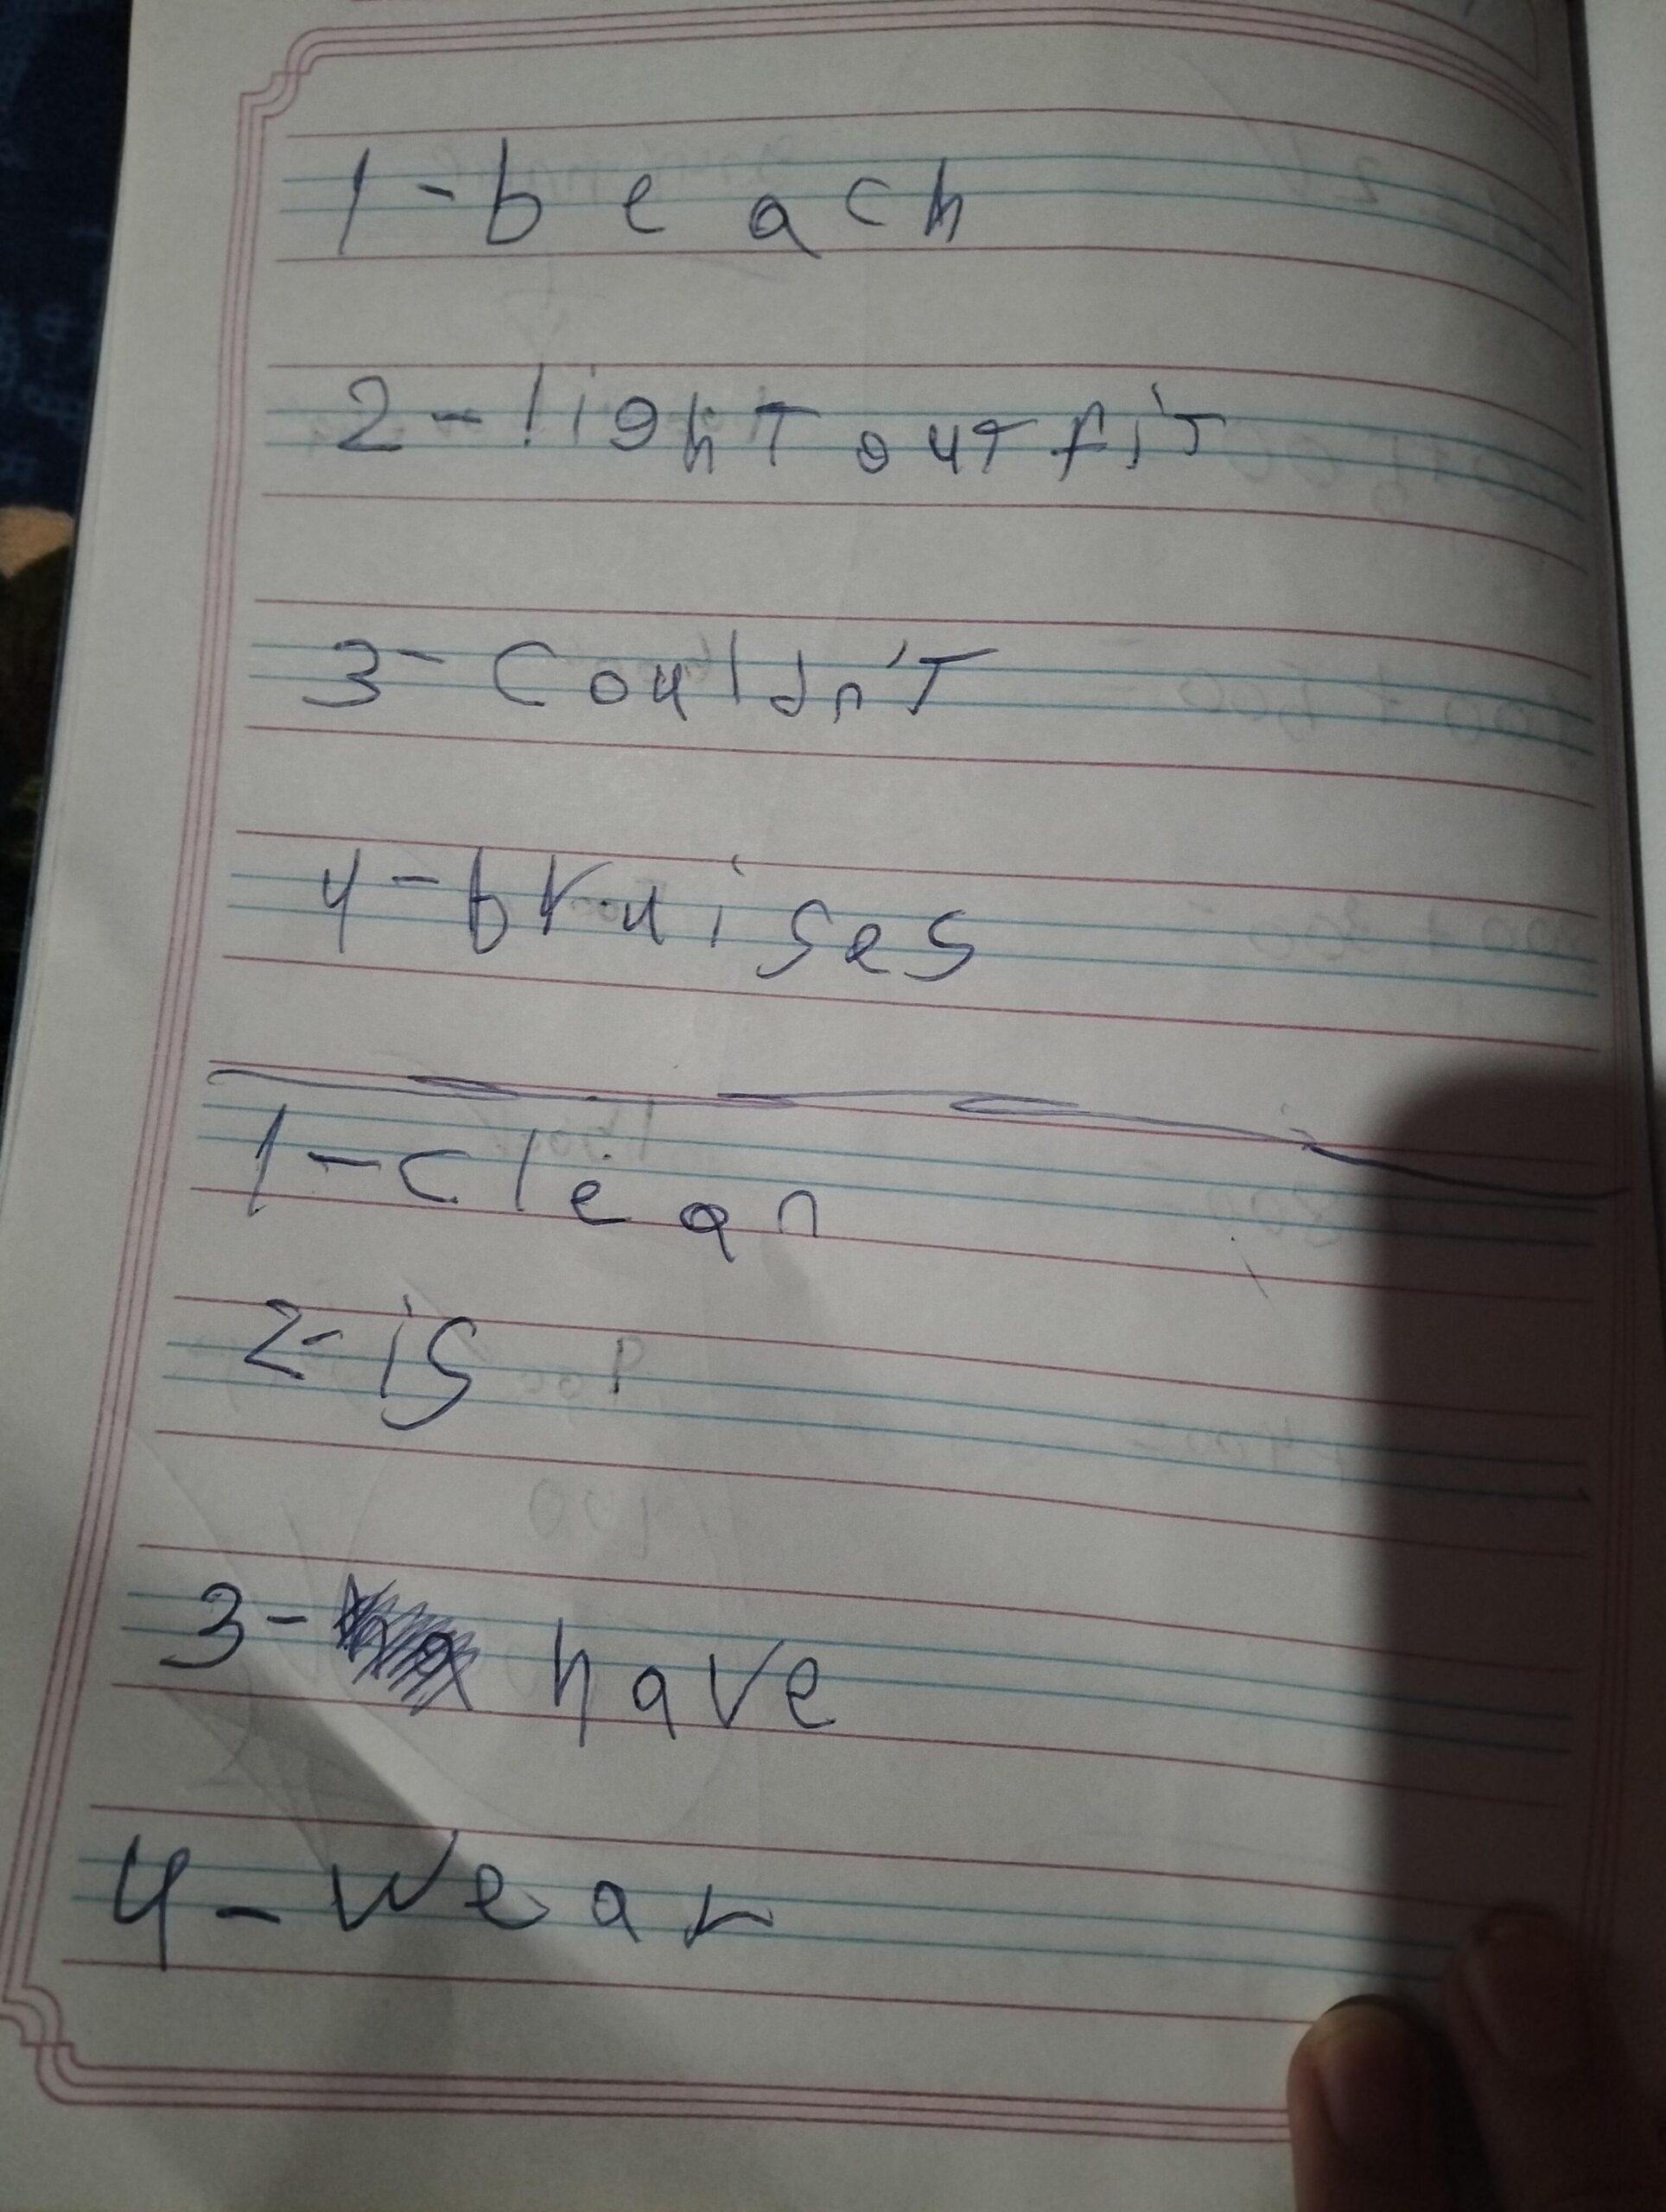 1-beach
2-light outfit
3-Couldn't
4-bruises
1-clean
2-is
3- have
4-wear